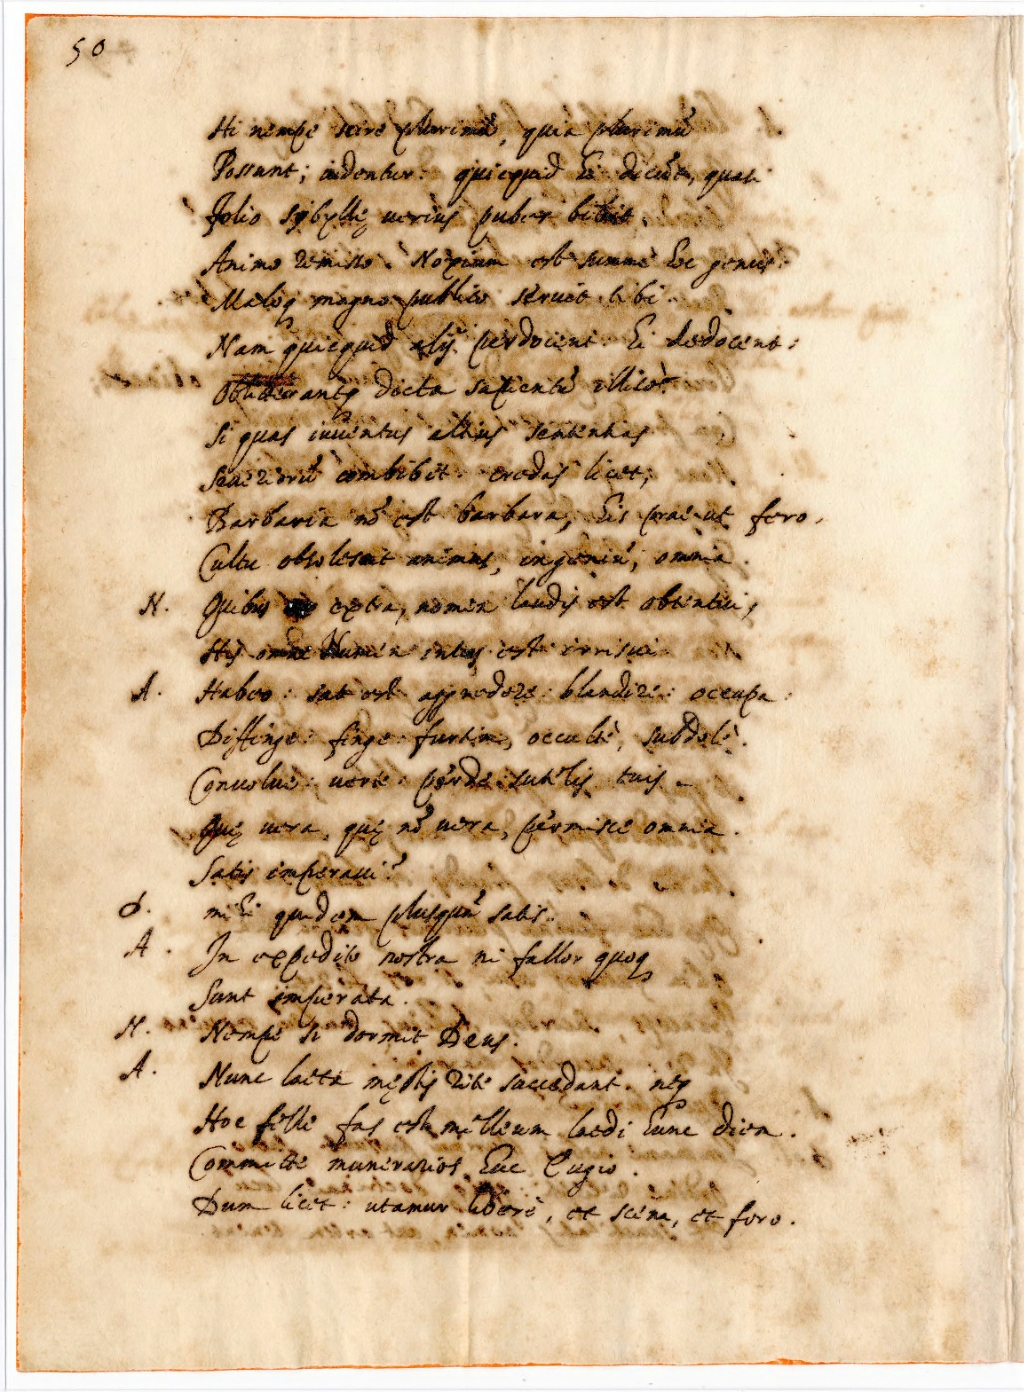 50
Hi nempe scire plurimū, quia plurimū
Possunt; uidentur: quicquid hi dicūt, quasi
Folio sybyllę uerius puber bibit.
Animo remisso. Noxium est summè hoc genus.
Maloq magno publico struit tibi.
Nam quicquid alij perdocent: hi dedocent:
Obliterantq docta sapientū illicò.
Si quas iuuentus altius sententias
Seueriorū combibit: credas licet,
Barbaria nō est barbara, his prae ut fero.
Cultu obsolescit animus, ingeniū, omnia.
N. Quibus extra, nomen laudis est obtentui,
His omne Numen intus est irrisui.
A. Habeo: sat est: aggredere: blandire: occupa:
Diffinge: finge: furtim, occultè, subdolè.
Conuolue: uerte: perde: subtelis tuis.
Quę uera, quę nō uera, permisce omnia.
Satis imperaui?
D. mihi quidem plusquā satis.
A. In expedito nostra ni fallor quoq
Sunt imperata.
N. Nempe si dormit Deus.
A. Nunc laeta męstis rite succedant. neq
Hoc felle fas est melleum laedi hunc diem.
Committe munerarios huc Eugio.
Dum licet: utamur liberè, et scena, et foro.